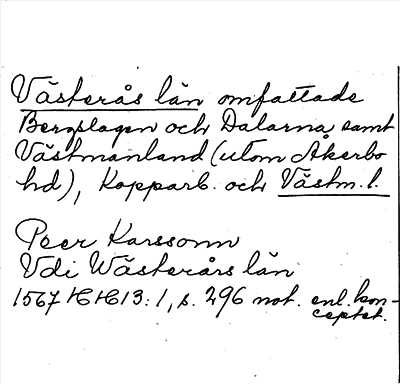 Västerås län omfattade
Bergslagen och Dalarna samt
Västmanland (utom Åkerbo
hd), Kopparb. och Västm. l.
Peer Karssonn
Udi Wästerårs län
1567 HH13:1, s. 296 not. enl. kon-
ceptet.